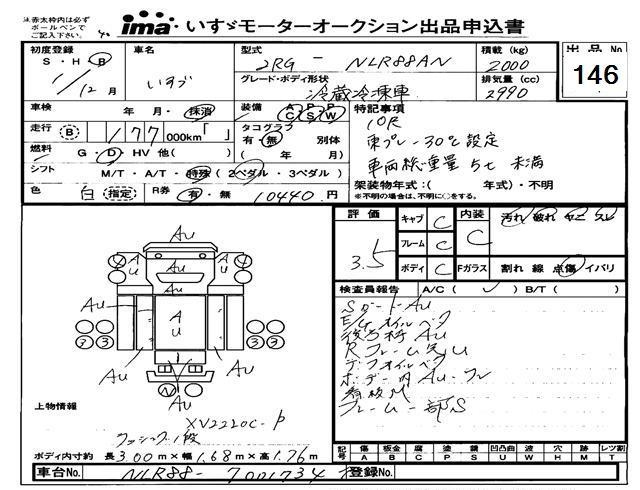 注.赤太枠内は必ず
ボールペンで
ご記入下さい。
ima いすゞモーターオークション出品申込書
初度登録 車名 型式 積載 (kg) 出品 No
S・H Ⓡ 2RG - NLR88AN 2000
1/12月 いすゞ グレード・ボディ形状 排気量 (cc) 146
冷蔵冷凍車 2990
車検 年 月・抹消 装備 A P P 特記事項
C S W 10尺
走行 B 177 000km「 」 タコグラフ
有・無 別体 東プレ -30℃設定
燃料 G・D・HV 他( ) ( 年 月) 車両総重量 5t 未満
シフト M/T・A/T・特殊(2ペダル・3ペダル) 架装物年式:( 年式)・不明
※不明の場合は、不明に○をする。
色 白 指定 R券 有・無 10440円
評価 キャブ C 内装 汚れ 破れ
3.5 フレーム C C
ボディ C Fガラス 割れ 線 点傷 イバリ
検査員報告 A/C( ) B/T( )
SガートAU
E/Gオイルベタ
Au
Au
Au
AU
Au
Au
Au
Rフレーム
デフオイルベタ
ボデー内AU
看板M
フレーム一部S
上物情報
XV2220C-P
ラッシング1段
ボディ内寸約 長 3.00 m × 幅 1.68 m × 高 1.76 m
記号 傷 A 板金 B 腐 C 塗 P 錆 S 凹凸曲 U 波 W 穴 H 跡 M レツ割 T
車台No. NLR88-7001734 登録No.